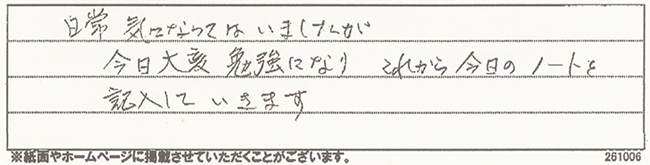 日常 気になってはいましたが
今日大変 勉強になり これから 今日の ノートを
記入して いきます
※紙面やホームページに掲載させていただくことがございます。
261006